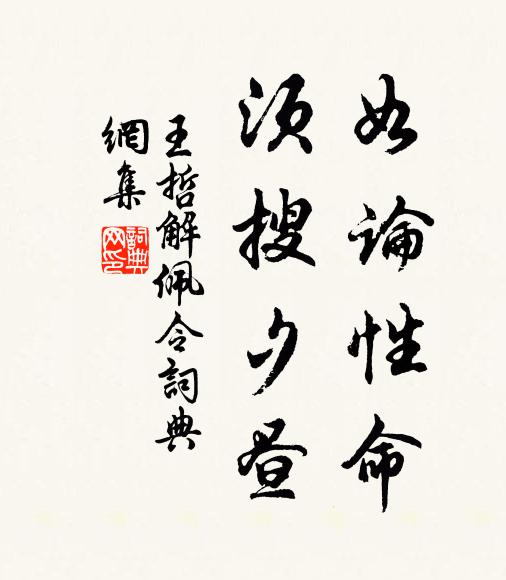 如論性命
須搜夕晝
王哲解佩令詞典
網集
詞典网印